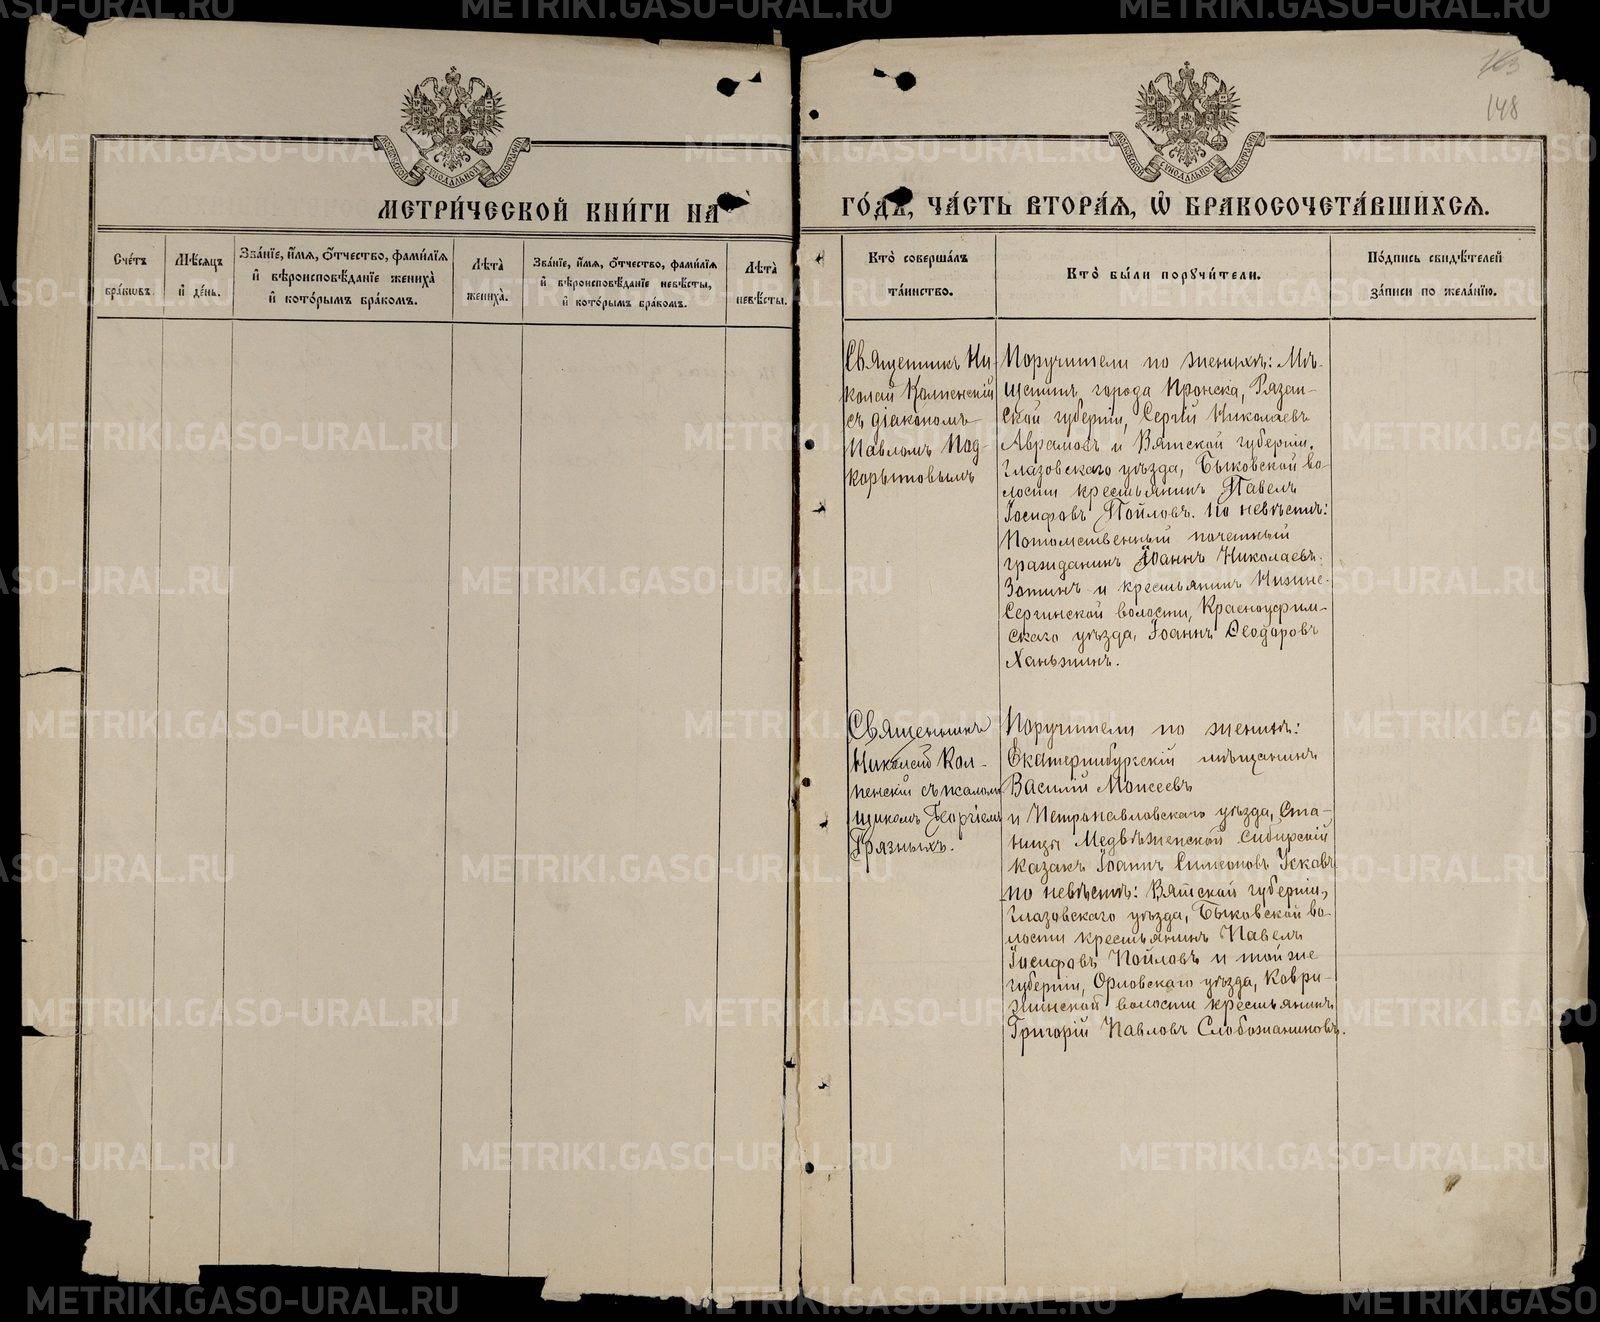 163
148
МОСКОВСКОЙ СѴНОДАЛЬНОЙ ТИПОГРАФІИ
МОСКОВСКОЙ СѴНОДАЛЬНОЙ ТИПОГРАФІИ
МЕТРИ́ЧЕСКОЙ КНИ́ГИ НА
ГО́ДЪ, ЧА́СТЬ ВТОРА́Я, Ѽ БРАКОСОЧЕТА́ВШИХСЯ.
Сче́тъ
бра́кѡвъ.
Мѣ́сяцъ
и҆ де́нь.
Зва́нїе, и҆́мя, ѻ҆́тчество, фами́лїя
и҆ вѣроисповѣ́данїе жениха̀
и҆ кото́рымъ бра́комъ.
Лѣта̀
жениха̀.
Зва́нїе, и҆́мя, ѻ҆́тчество, фами́лїя
и҆ вѣроисповѣ́данїе невѣ́сты,
и҆ кото́рымъ бра́комъ.
Лѣта̀
невѣ́сты.
Кто̀ соверша́лъ
та́инство.
Кто̀ бы́ли порꙋчи́тели.
По́дпись свидѣ́телей
за́писи по жела́нїю.
Священникъ Ни-
колай Колпенскій
съ діакономъ
Павломъ Под-
корытовымъ
Поручители по женихѣ: Мѣ-
щанинъ города Пронска, Рязан-
ской губерніи, Сергій Николаевъ
Аврамовъ и Вятской губерніи,
Глазовскаго уѣзда, Быковской во-
лости крестьянинъ Павелъ
Іосифовъ Пойловъ. по невѣстѣ:
Потомственный почетный
гражданинъ Іоаннъ Николаевъ
Зотинъ и крестьянинъ Нижне-
Сергинской волости, Красноуфим-
скаго уѣзда, Іоаннъ Ѳеодоровъ
Ханьжинъ.
Священникъ
Николай Кол-
пенскій съ псалом-
щикомъ Георгіемъ
Грязныхъ.
Поручители по женихѣ:
Екатеринбургскій мѣщанинъ
Василій Моисеевъ
и Петропавловскаго уѣзда, Ста-
ницы Медвѣженской Сибирскій
казакъ Іоаннъ Симеоновъ Усковъ
по невѣстѣ: Вятской губерніи,
Глазовскаго уѣзда, Быковской во-
лости крестьянинъ Павелъ
Іосифовъ Пойловъ и той же
губерніи, Орловскаго уѣзда, Коври-
жинской волости крестьянинъ
Григорій Павловъ Слобожаниновъ.
METRIKI.GASO-URAL.RU